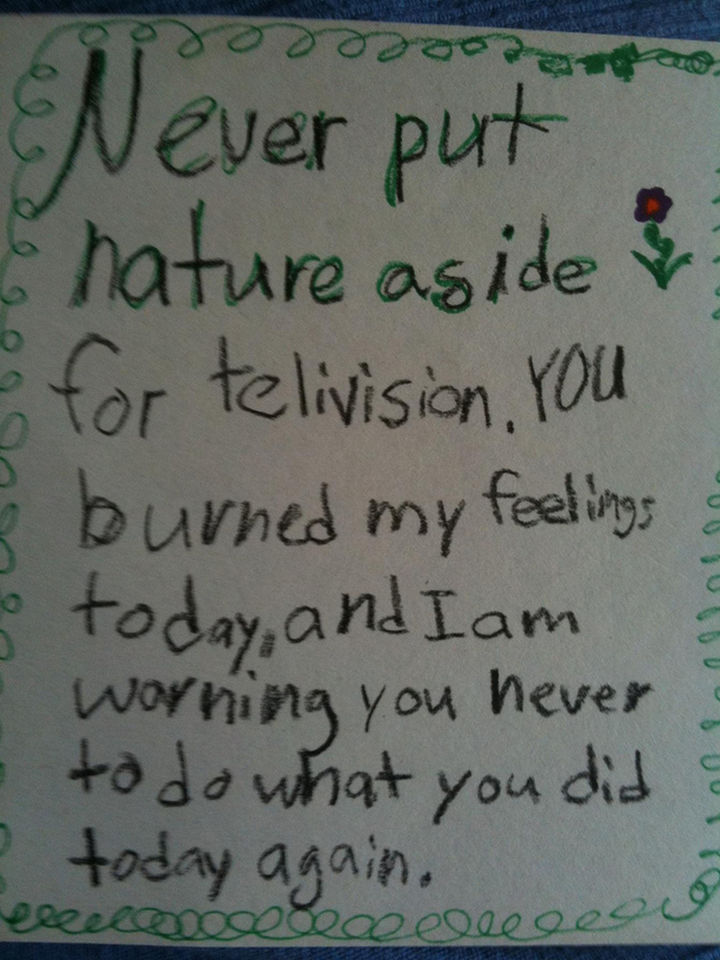 Never put
nature aside
for telivision. YOU
burned my feelings
today, and I am
warning you never
to do what you did
today again.